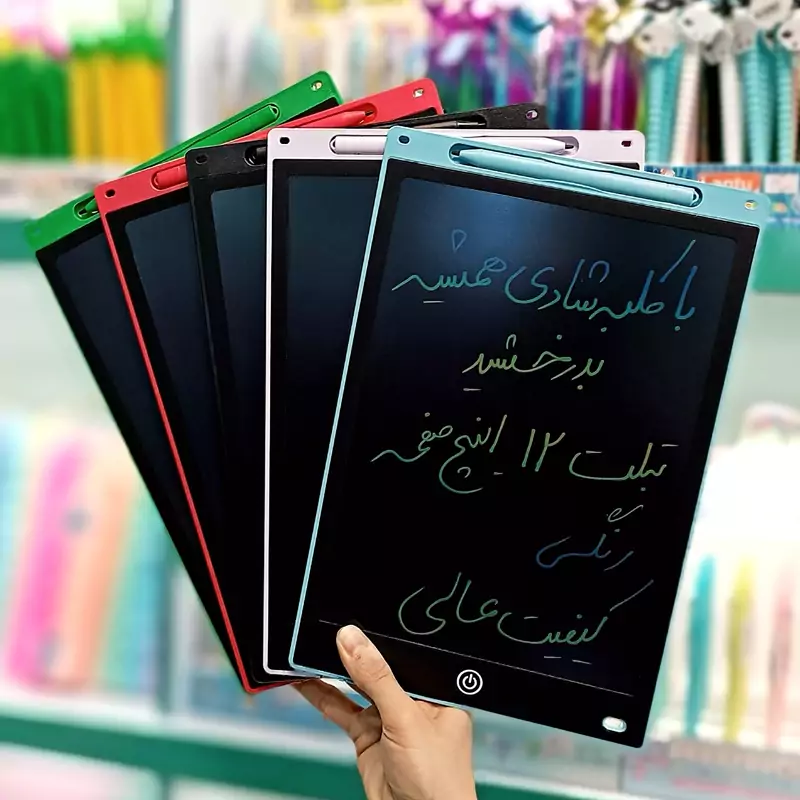 با کلبه شادی همیشه
بدرخشید
تبلت ۱۲ اینچ صفحه
رنگی
کیفیت عالی